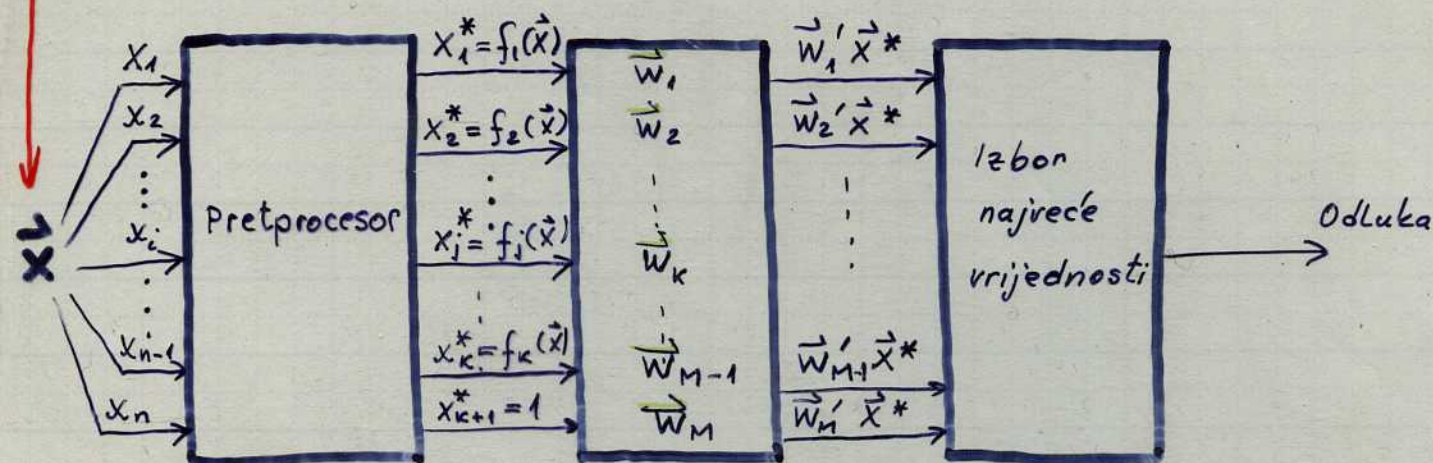 x⃗
x₁
x₂
xᵢ
xₙ₋₁
xₙ
Pretprocesor
x₁* = f₁(x⃗)
x₂* = f₂(x⃗)
xⱼ* = fⱼ(x⃗)
x_K* = f_K(x⃗)
x*_K+1 = 1
w⃗₁
w⃗₂
w⃗_K
w⃗_M-1
w⃗_M
w⃗₁' x⃗*
w⃗₂' x⃗*
w⃗'_M-1 x⃗*
w⃗_M' x⃗*
Izbor
najveće
vrijednosti
Odluka